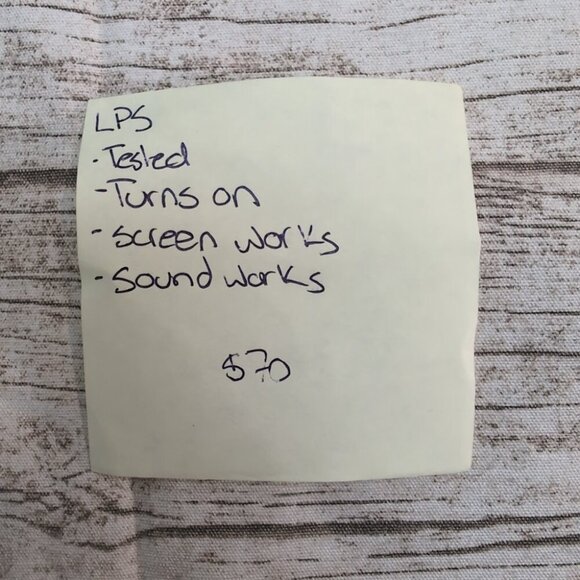 LPS
- Tested
- Turns on
- Screen works
- Sound works
$70